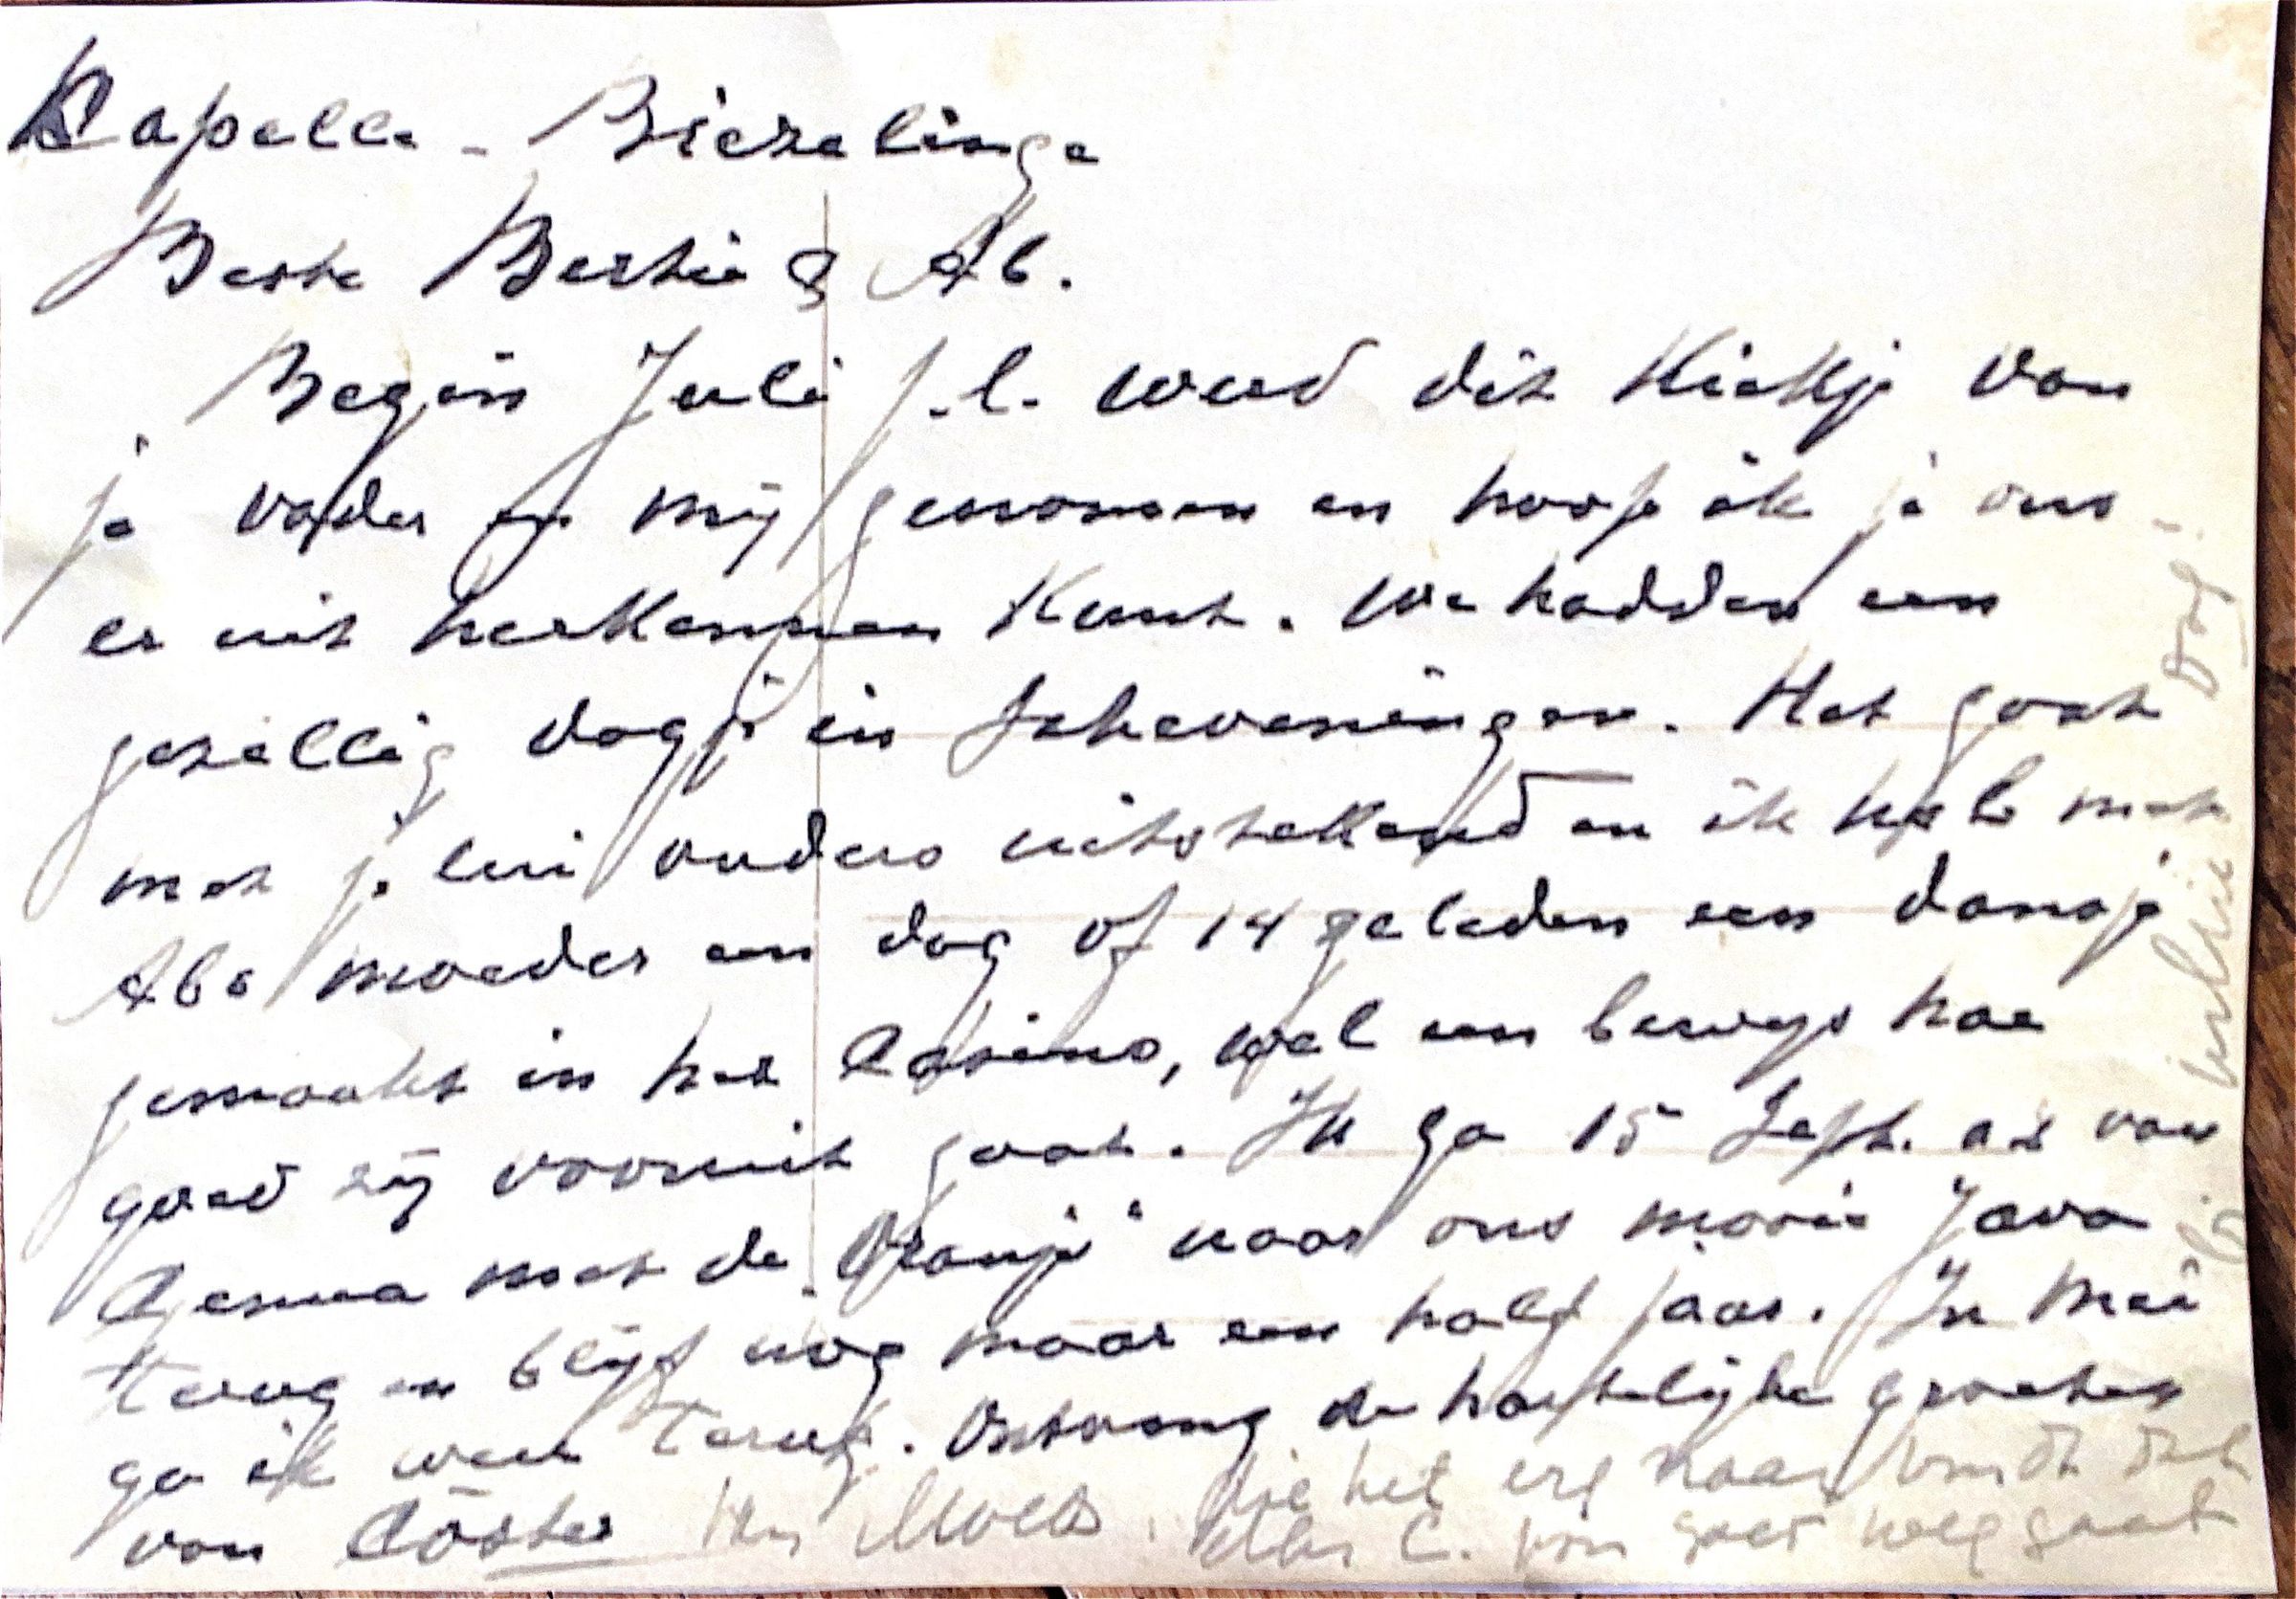 Kapelle - Biezelinge
Beste Bertie & Ab.
Begin Juli j.l. werd dit Kiekje van
je vader en mij genomen en hoop ik je ons
er uit herkennen kunt. We hadden een
gezellig dagje in Scheveningen. Het gaat
met je lui ouders uitstekend en ik heb met
Abs moeder een dag of 14 geleden een dansje
gemaakt in het Casino, wel een bewys hoe
goed zij vooruit gaat. Ik ga 15 Sept. a.s. van
Genua met de "Oranje" naar ons mooie Java
terug en blijf nog maar een half jaar. In Mei
ga ik weer terug. Ontvang de hartelijke groeten
van Cöster
en Moes. die het erg naar vindt dat
C. weg gaat
Dag!